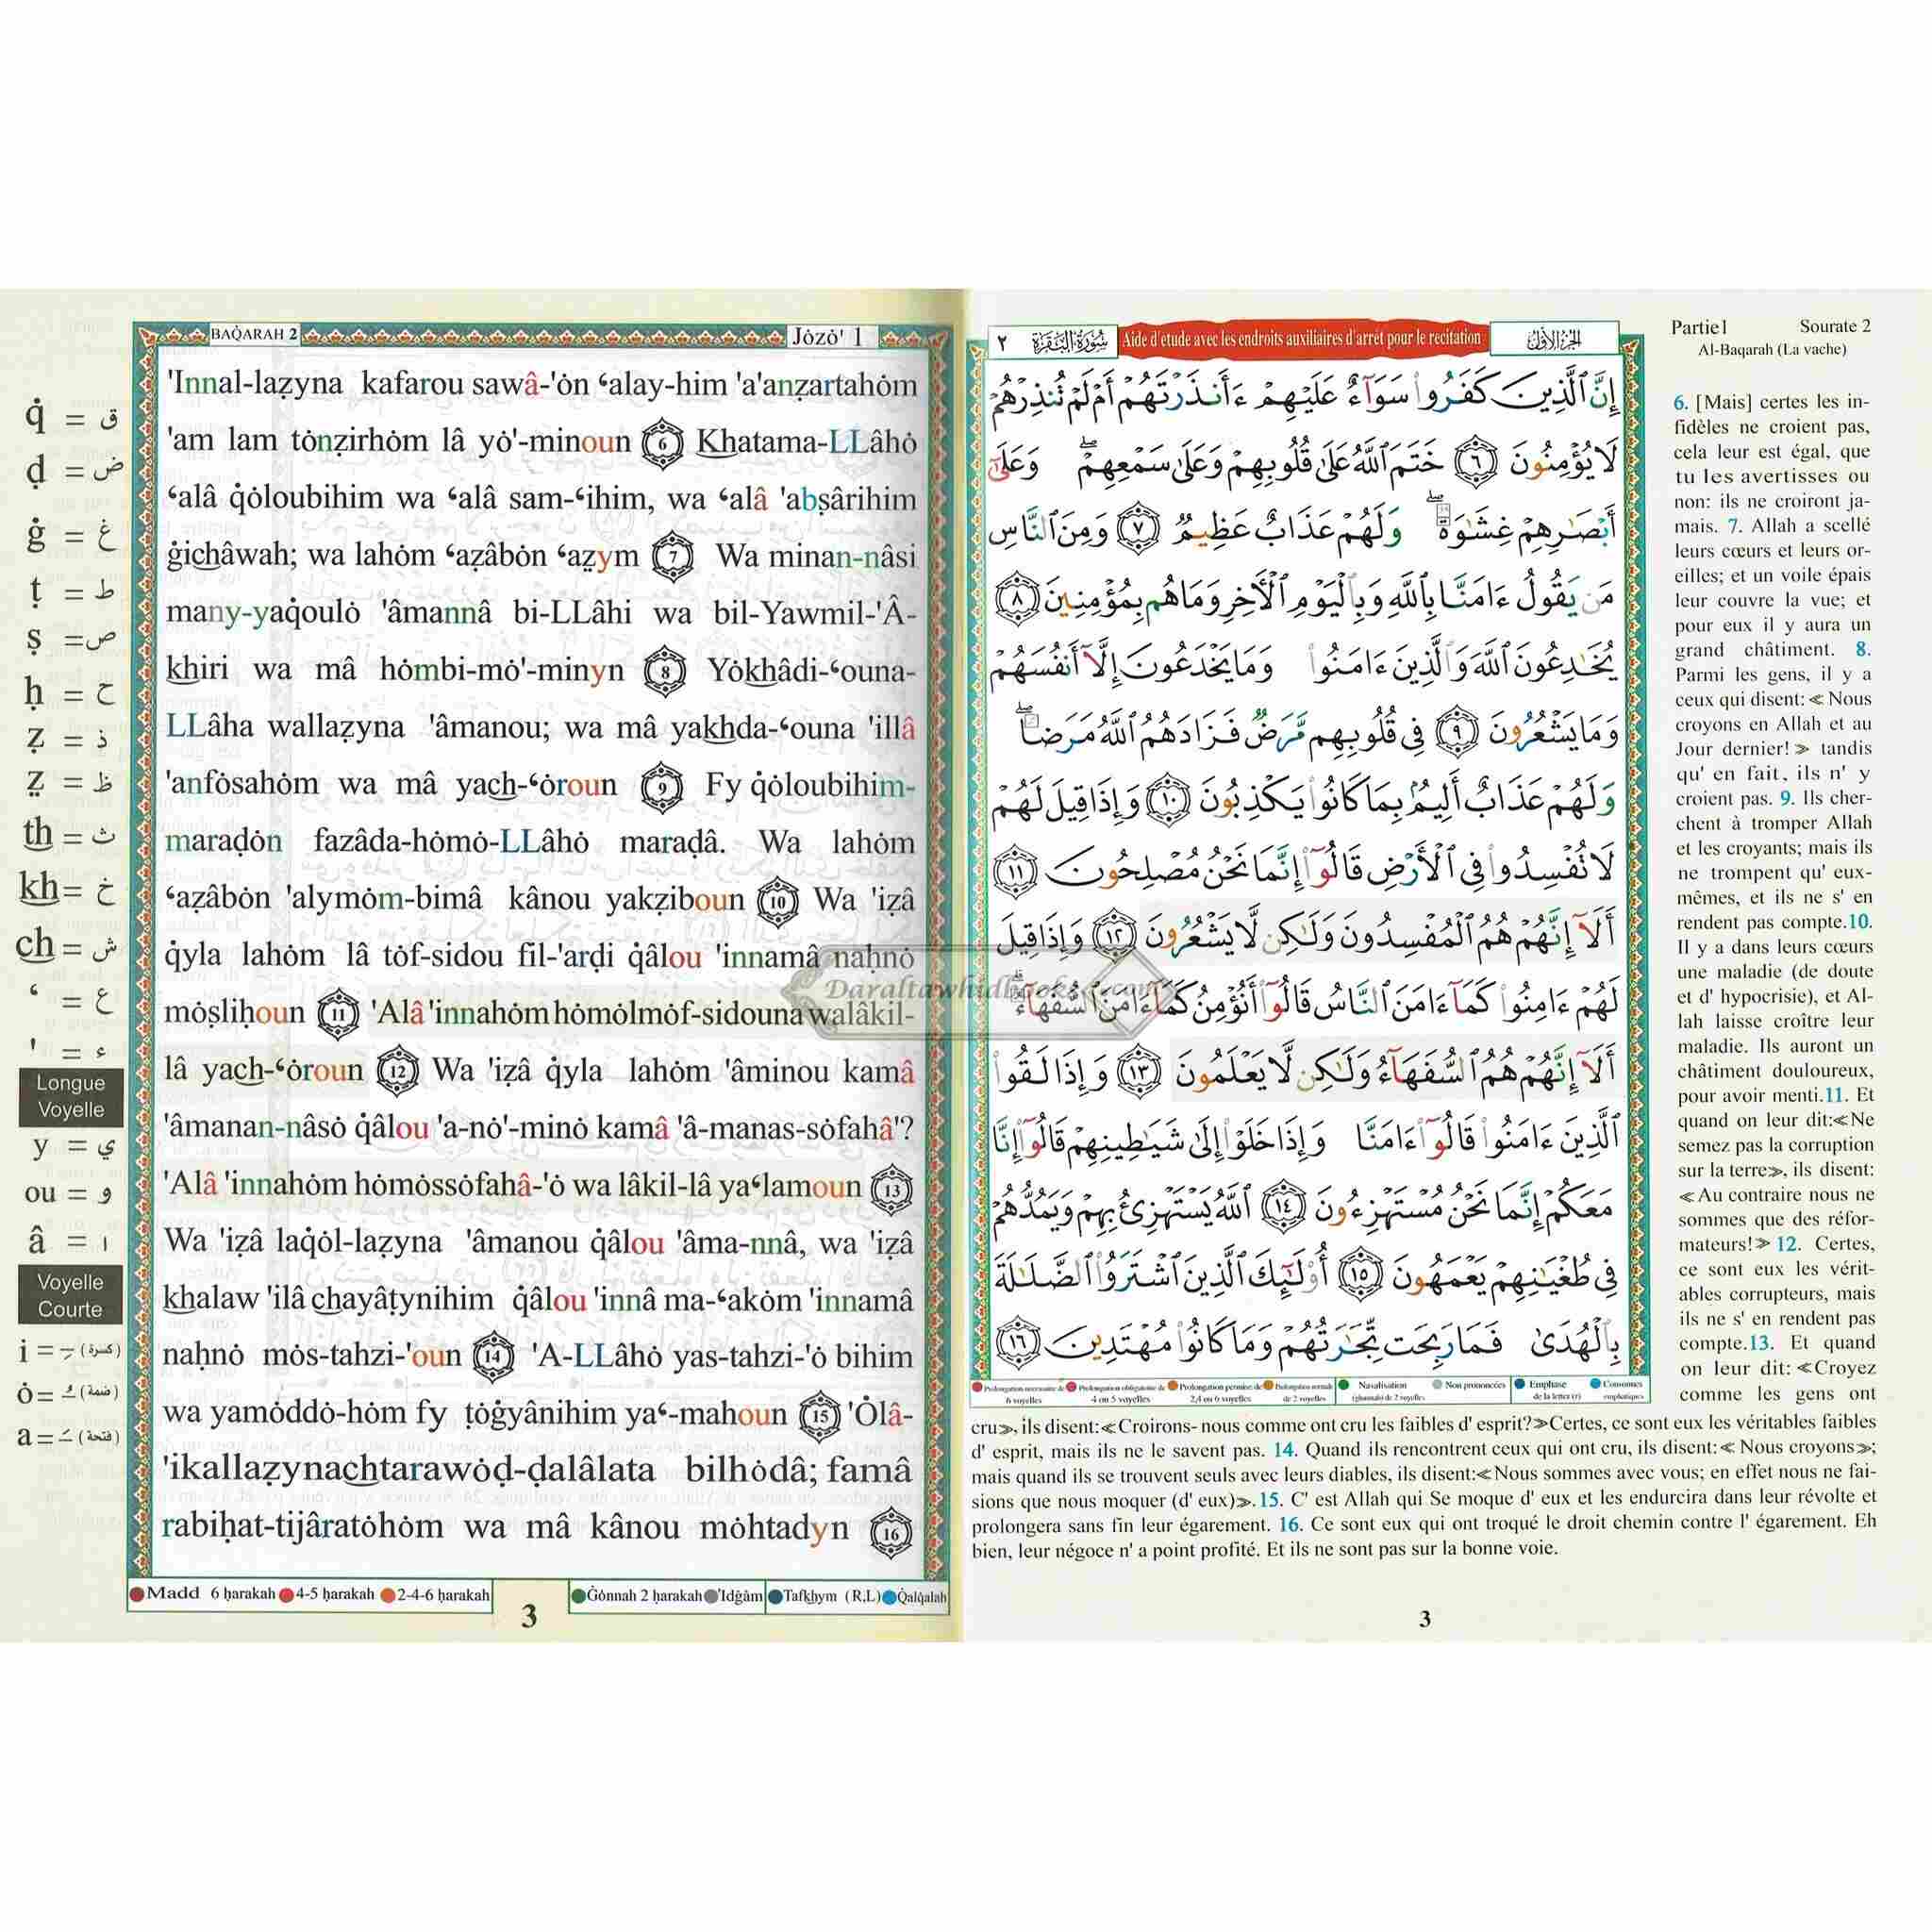 BAQ̇ARAH 2
Jȯzȯ' 1
'Innal-laẓyna kafarou sawâ-'ȯn ʿalay-him 'a'anẓartahȯm
'am lam tȯnẓirhȯm lâ yȯ'-minoun 6 Khatama-LLâhȯ
ʿalâ q̇ȯloubihim wa ʿalâ sam-ʿihim, wa ʿalâ 'abṣârihim
ġichâwah; wa lahȯm ʿaẓâbȯn ʿaẓym 7 Wa minan-nâsi
many-yaq̇oulȯ 'âmannâ bi-LLâhi wa bil-Yawmil-'Â-
khiri wa mâ hȯmbi-mȯ'-minyn 8 Yȯkhâdi-ʿouna-
LLâha wallaẓyna 'âmanou; wa mâ yakhda-ʿouna 'illâ
'anfȯsahȯm wa mâ yach-ʿȯroun 9 Fy q̇ȯloubihim-
maraḍȯn fazâda-hȯmȯ-LLâhȯ maraḍâ. Wa lahȯm
ʿaẓâbȯn 'alymȯm-bimâ kânou yakẓiboun 10 Wa 'iẓâ
q̇yla lahȯm lâ tȯf-sidou fil-'arḍi q̇âlou 'innamâ naḥnȯ
mȯṣliḥoun 11 'Alâ 'innahȯm hȯmȯlmȯf-sidouna walâkil-
lâ yach-ʿȯroun 12 Wa 'iẓâ q̇yla lahȯm 'âminou kamâ
'âmanan-nâsȯ q̇âlou 'a-nȯ'-minȯ kamâ 'â-manas-sȯfahâ'?
'Alâ 'innahȯm hȯmȯssȯfahâ-'ȯ wa lâkil-lâ yaʿlamoun 13
Wa 'iẓâ laq̇ȯl-laẓyna 'âmanou q̇âlou 'âma-nnâ, wa 'iẓâ
khalaw 'ilâ chayâṭynihim q̇âlou 'innâ ma-ʿakȯm 'innamâ
naḥnȯ mȯs-tahzi-'oun 14 'A-LLâhȯ yas-tahzi-'ȯ bihim
wa yamȯddȯ-hȯm fy ṭȯġyânihim yaʿ-mahoun 15 'Ȯlâ-
'ikallaẓynachtarawȯḍ-ḍalâlata bilhȯdâ; famâ
rabiḥat-tijâratȯhȯm wa mâ kânou mȯhtadyn 16
Madd 6 ḥarakah 4-5 ḥarakah 2-4-6 ḥarakah
Ġȯnnah 2 ḥarakah 'Idġâm Tafkhym (R,L) Q̇alq̇alah
3
q̇ = ق
ḍ = ض
ġ = غ
ṭ = ط
ṣ = ص
ḥ = ح
ẓ = ذ
ẓ = ظ
th = ث
kh = خ
ch = ش
ʿ = ع
' = ء
Longue
Voyelle
y = ي
ou = و
â = ا
Voyelle
Courte
i = ـِ (كسرة)
ȯ = ـُ (ضمة)
a = ـَ (فتحة)
٢ سُورَةُ البَقَرَةِ
Aide d'etude avec les endroits auxiliaires d'arrêt pour le recitation
الجزء الأول
إِنَّ ٱلَّذِينَ كَفَرُوا۟ سَوَآءٌ عَلَيْهِمْ ءَأَنذَرْتَهُمْ أَمْ لَمْ تُنذِرْهُمْ
لَا يُؤْمِنُونَ ٦ خَتَمَ ٱللَّهُ عَلَىٰ قُلُوبِهِمْ وَعَلَىٰ سَمْعِهِمْ ۖ وَعَلَىٰٓ
أَبْصَـٰرِهِمْ غِشَـٰوَةٌ ۖ وَلَهُمْ عَذَابٌ عَظِيمٌ ٧ وَمِنَ ٱلنَّاسِ
مَن يَقُولُ ءَامَنَّا بِٱللَّهِ وَبِٱلْيَوْمِ ٱلْـَٔاخِرِ وَمَا هُم بِمُؤْمِنِينَ ٨
يُخَـٰدِعُونَ ٱللَّهَ وَٱلَّذِينَ ءَامَنُوا۟ وَمَا يَخْدَعُونَ إِلَّآ أَنفُسَهُمْ
وَمَا يَشْعُرُونَ ٩ فِى قُلُوبِهِم مَّرَضٌ فَزَادَهُمُ ٱللَّهُ مَرَضًا ۖ
وَلَهُمْ عَذَابٌ أَلِيمٌۢ بِمَا كَانُوا۟ يَكْذِبُونَ ١٠ وَإِذَا قِيلَ لَهُمْ
لَا تُفْسِدُوا۟ فِى ٱلْأَرْضِ قَالُوٓا۟ إِنَّمَا نَحْنُ مُصْلِحُونَ ١١
أَلَآ إِنَّهُمْ هُمُ ٱلْمُفْسِدُونَ وَلَـٰكِن لَّا يَشْعُرُونَ ١٢ وَإِذَا قِيلَ
لَهُمْ ءَامِنُوا۟ كَمَآ ءَامَنَ ٱلنَّاسُ قَالُوٓا۟ أَنُؤْمِنُ كَمَآ ءَامَنَ ٱلسُّفَهَآءُ ۗ
أَلَآ إِنَّهُمْ هُمُ ٱلسُّفَهَآءُ وَلَـٰكِن لَّا يَعْلَمُونَ ١٣ وَإِذَا لَقُوا۟
ٱلَّذِينَ ءَامَنُوا۟ قَالُوٓا۟ ءَامَنَّا وَإِذَا خَلَوْا۟ إِلَىٰ شَيَـٰطِينِهِمْ قَالُوٓا۟ إِنَّا
مَعَكُمْ إِنَّمَا نَحْنُ مُسْتَهْزِءُونَ ١٤ ٱللَّهُ يَسْتَهْزِئُ بِهِمْ وَيَمُدُّهُمْ
فِى طُغْيَـٰنِهِمْ يَعْمَهُونَ ١٥ أُو۟لَـٰٓئِكَ ٱلَّذِينَ ٱشْتَرَوُا۟ ٱلضَّلَـٰلَةَ
بِٱلْهُدَىٰ فَمَا رَبِحَت تِّجَـٰرَتُهُمْ وَمَا كَانُوا۟ مُهْتَدِينَ ١٦
Nasalisation
Non prononcées
Emphase
Consonnes
Daraltawhidbooks.com
Partie1 Sourate 2
Al-Baqarah (La vache)
6. [Mais] certes les in-
fidèles ne croient pas,
cela leur est égal, que
tu les avertisses ou
non: ils ne croiront ja-
mais. 7. Allah a scellé
leurs cœurs et leurs or-
eilles; et un voile épais
leur couvre la vue; et
pour eux il y aura un
grand châtiment. 8.
Parmi les gens, il y a
ceux qui disent:≪ Nous
croyons en Allah et au
Jour dernier!≫ tandis
qu' en fait, ils n' y
croient pas. 9. Ils cher-
chent à tromper Allah
et les croyants; mais ils
ne trompent qu' eux-
mêmes, et ils ne s' en
rendent pas compte.10.
Il y a dans leurs cœurs
une maladie (de doute
et d' hypocrisie), et Al-
lah laisse croître leur
maladie. Ils auront un
châtiment douloureux,
pour avoir menti.11. Et
quand on leur dit:≪Ne
semez pas la corruption
sur la terre≫, ils disent:
≪Au contraire nous ne
sommes que des réfor-
mateurs!≫ 12. Certes,
ce sont eux les vérit-
ables corrupteurs, mais
ils ne s' en rendent pas
compte.13. Et quand
on leur dit: ≪Croyez
comme les gens ont
cru≫, ils disent:≪Croirons- nous comme ont cru les faibles d' esprit?≫Certes, ce sont eux les véritables faibles
d' esprit, mais ils ne le savent pas. 14. Quand ils rencontrent ceux qui ont cru, ils disent:≪ Nous croyons≫;
mais quand ils se trouvent seuls avec leurs diables, ils disent:≪Nous sommes avec vous; en effet nous ne fai-
sions que nous moquer (d' eux)≫.15. C' est Allah qui Se moque d' eux et les endurcira dans leur révolte et
prolongera sans fin leur égarement. 16. Ce sont eux qui ont troqué le droit chemin contre l' égarement. Eh
bien, leur négoce n' a point profité. Et ils ne sont pas sur la bonne voie.
3